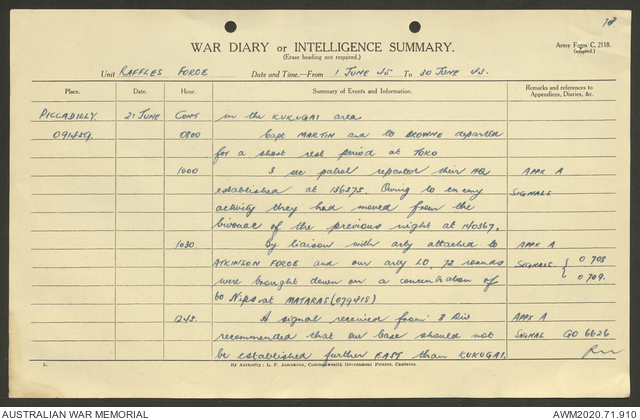 18
WAR DIARY or INTELLIGENCE SUMMARY.
(Erase heading not required.)
Army Form C. 2118.
(adapted.)
Unit RAFFLES FORCE Date and Time.—From 1 JUNE 45 To 30 JUNE 45.
Place. Date. Hour. Summary of Events and Information. Remarks and references to Appendices, Diaries, &c.
PICCADILLY 21 JUNE CONT in the KUKUGAI area
091459. 0800 Capt MARTIN and Lt BROWNE departed
for a short rest period at TOKO
1000 3 sec patrol reported their HQ APPX A
established at 136375. Owing to enemy SIGNALS
activity they had moved from the
bivouac of the previous night at 140367.
1030. By liaison with arty attached to APPX A
ATKINSON FORCE and our arty LO, 72 rounds SIGNALS { O 708
were brought down on a concentration of O 709.
60 Nips at MATARAS (079418)
1245. A signal received from 3 Div APPX A
recommended that our base should not SIGNAL GO 6626
be established further EAST than KUKUGAI.
L. By Authority: L. F. Johnston, Commonwealth Government Printer, Canberra.
AUSTRALIAN WAR MEMORIAL AWM2020.71.910